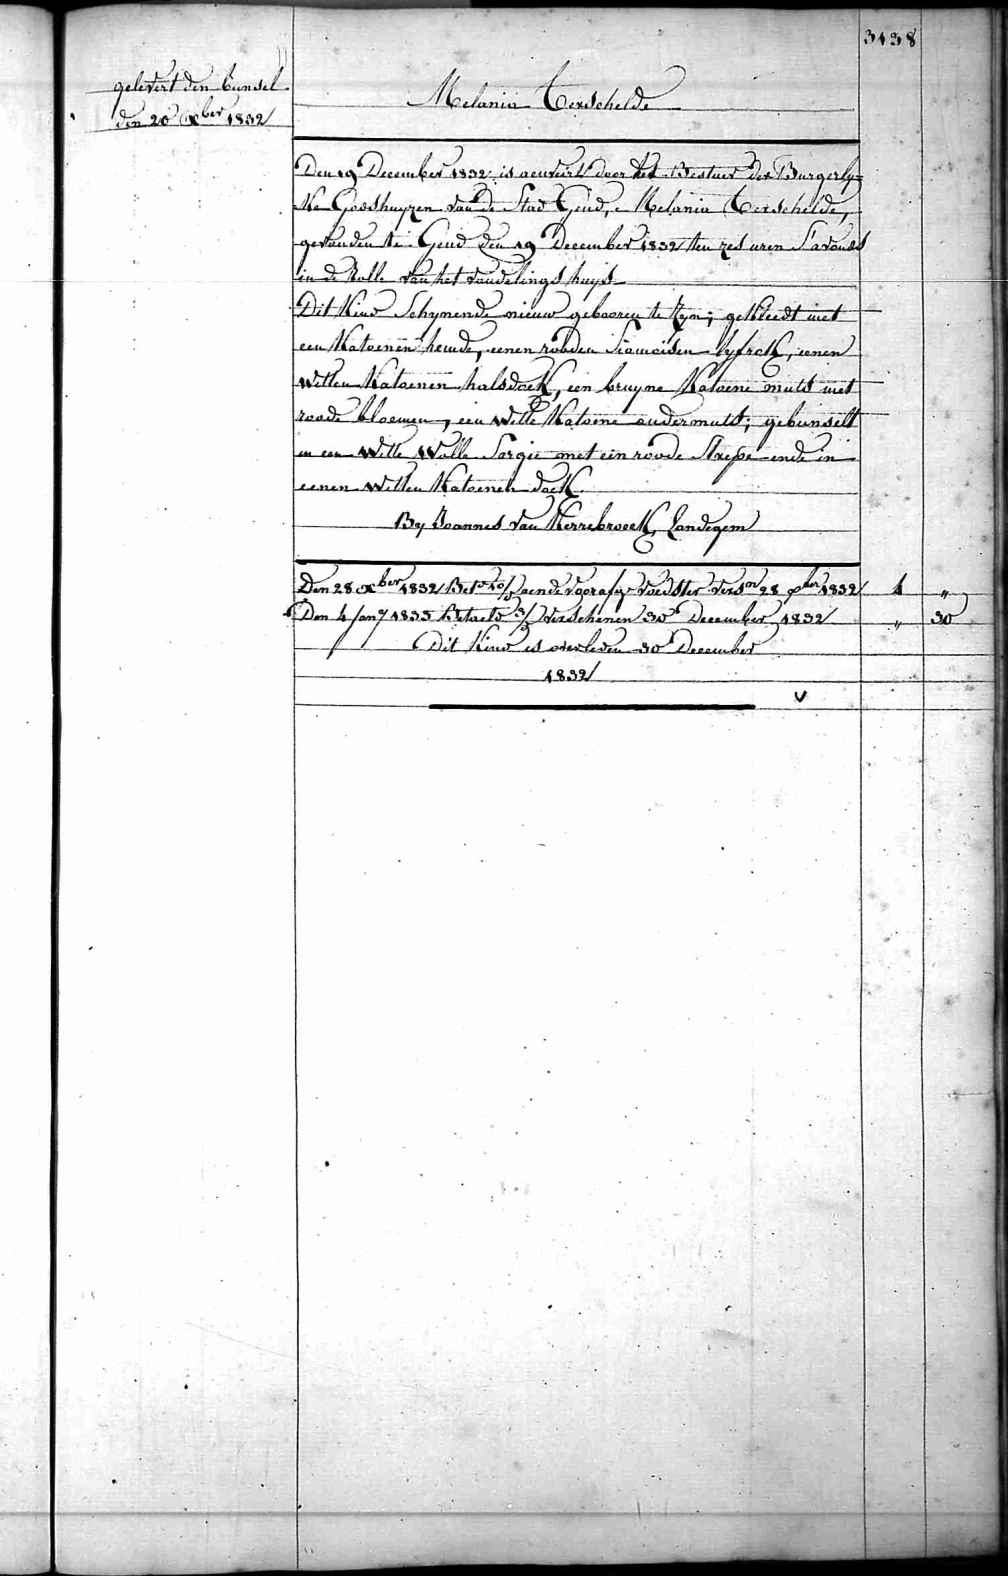 3138
gelevert den bunsel
den 20 Xber 1832
Melania Terschelde
Den 19 December 1832 is aenveirt door het Bestuer der Burgerly=
ke Godshuyzen van de Stad Gend, Melania Terschelde,
gevonden te Gend den 19 December 1832 ten zes uren S'avonds
in de Rolle van het vondelingshuys
Dit Kind Schynende nieuw gebooren te zyn; gekleedt met
een Katoenen hemde, eenen rooden Siamoisen lyfrok, eenen
witten Katoenen halsdoek, een bruyne Katoene muts met
roode bloemen, een witte Katoene ondermuts; gebunselt
in een witte wolle Sargie met een roode Strepe ende in
eenen witten Katoenen doek
By Joannes Van Kerrebroeck, Landegem
Den 28 Xber 1832 Bet 10/ aende voorafge Voedster vers 28 Xber 1832 4 "
Den 4 Jany 1833 Betaeld 3/ verschenen 30 December 1832 " 30
Dit Kind is overleden 30 December
1832